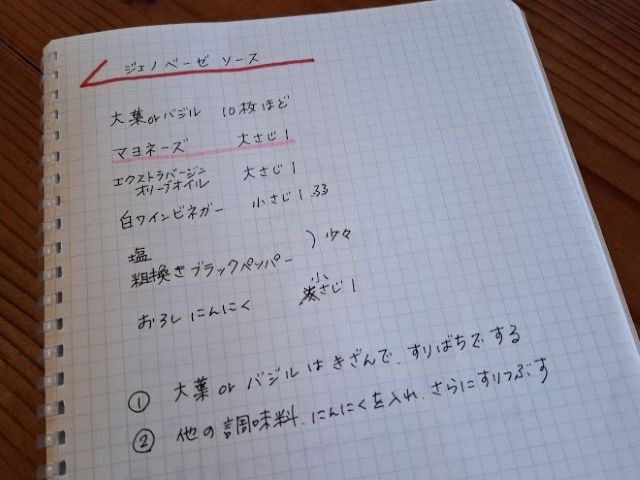 ジェノベーゼ ソース
大葉orバジル 10枚ほど
マヨネーズ 大さじ1
エクストラバージン
オリーブオイル 大さじ1
白ワインビネガー 小さじ1.33
塩
粗挽きブラックペッパー ) 少々
おろしにんにく 小さじ1
① 大葉 or バジル は きざんで、すりばちで する
② 他の調味料、にんにくを入れ、さらにすりつぶす